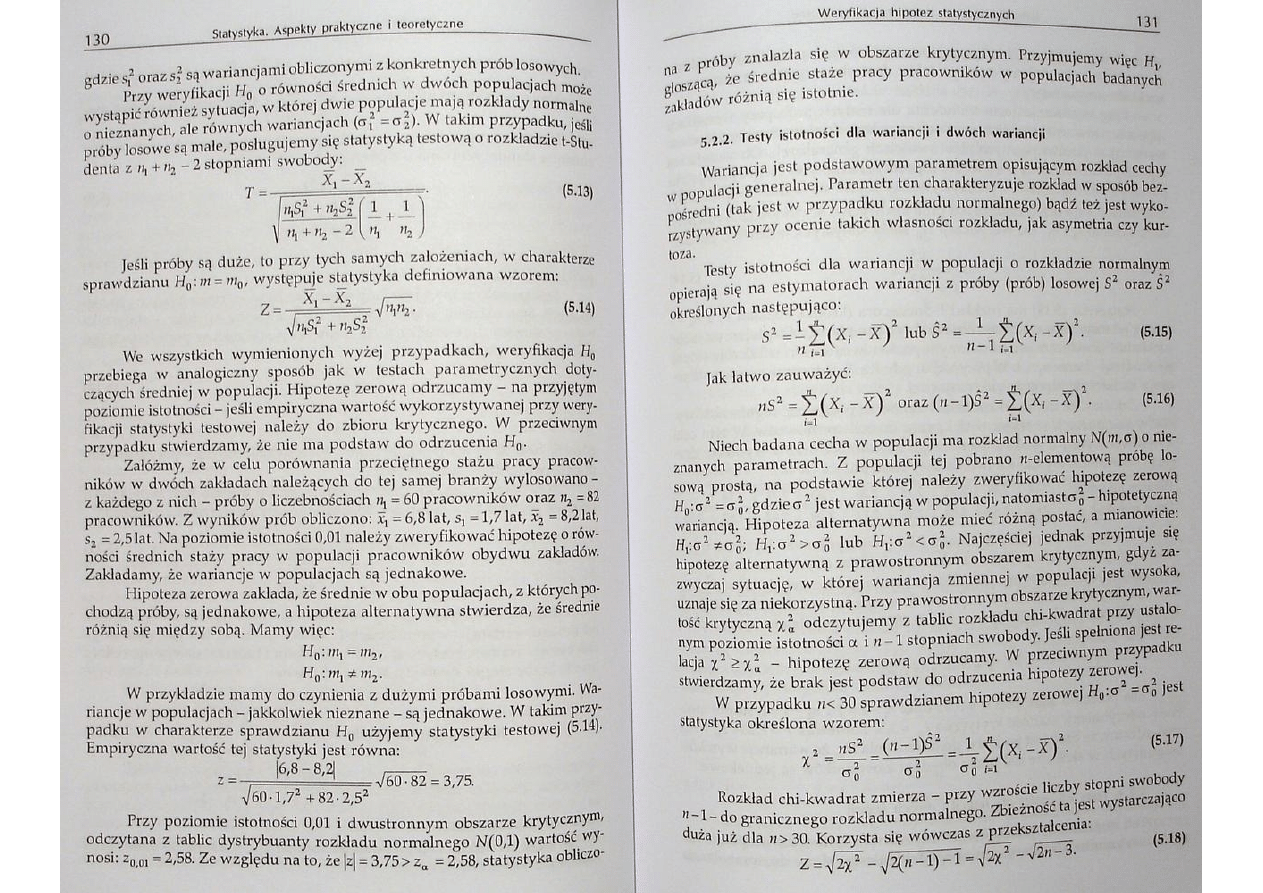 130 Statystyka. Aspekty praktyczne i teoretyczne
gdzie s₁² oraz s₂² są wariancjami obliczonymi z konkretnych prób losowych.
Przy weryfikacji H₀ o równości średnich w dwóch populacjach może
wystąpić również sytuacja, w której dwie populacje mają rozkłady normalne
o nieznanych, ale równych wariancjach (σ₁² = σ₂²). W takim przypadku, jeśli
próby losowe są małe, posługujemy się statystyką testową o rozkładzie t-Stu-
denta z n₁ + n₂ − 2 stopniami swobody:
T = (X̄₁ − X̄₂) / √( (n₁S₁² + n₂S₂²)/(n₁ + n₂ − 2) (1/n₁ + 1/n₂) ). (5.13)
Jeśli próby są duże, to przy tych samych założeniach, w charakterze
sprawdzianu H₀: m = m₀, występuje statystyka definiowana wzorem:
Z = (X̄₁ − X̄₂) / √(n₁S₁² + n₂S₂²) √(n₁n₂). (5.14)
We wszystkich wymienionych wyżej przypadkach, weryfikacja H₀
przebiega w analogiczny sposób jak w testach parametrycznych doty-
czących średniej w populacji. Hipotezę zerową odrzucamy – na przyjętym
poziomie istotności – jeśli empiryczna wartość wykorzystywanej przy wery-
fikacji statystyki testowej należy do zbioru krytycznego. W przeciwnym
przypadku stwierdzamy, że nie ma podstaw do odrzucenia H₀.
Załóżmy, że w celu porównania przeciętnego stażu pracy pracow-
ników w dwóch zakładach należących do tej samej branży wylosowano –
z każdego z nich – próby o liczebnościach n₁ = 60 pracowników oraz n₂ = 82
pracowników. Z wyników prób obliczono: x̄₁ = 6,8 lat, s₁ = 1,7 lat, x̄₂ = 8,2 lat,
s₂ = 2,5 lat. Na poziomie istotności 0,01 należy zweryfikować hipotezę o rów-
ności średnich staży pracy w populacji pracowników obydwu zakładów.
Zakładamy, że wariancje w populacjach są jednakowe.
Hipoteza zerowa zakłada, że średnie w obu populacjach, z których po-
chodzą próby, są jednakowe, a hipoteza alternatywna stwierdza, że średnie
różnią się między sobą. Mamy więc:
H₀: m₁ = m₂,
H₀: m₁ ≠ m₂.
W przykładzie mamy do czynienia z dużymi próbami losowymi. Wa-
riancje w populacjach – jakkolwiek nieznane – są jednakowe. W takim przy-
padku w charakterze sprawdzianu H₀ użyjemy statystyki testowej (5.14).
Empiryczna wartość tej statystyki jest równa:
z = |6,8 − 8,2| / √(60·1,7² + 82·2,5²) √(60·82) = 3,75.
Przy poziomie istotności 0,01 i dwustronnym obszarze krytycznym,
odczytana z tablic dystrybuanty rozkładu normalnego N(0,1) wartość wy-
nosi: z₀,₀₁ = 2,58. Ze względu na to, że |z| = 3,75 > zα = 2,58, statystyka obliczo-
Weryfikacja hipotez statystycznych 131
na z próby znalazła się w obszarze krytycznym. Przyjmujemy więc H₁,
głoszącą, że średnie staże pracy pracowników w populacjach badanych
zakładów różnią się istotnie.
5.2.2. Testy istotności dla wariancji i dwóch wariancji
Wariancja jest podstawowym parametrem opisującym rozkład cechy
w populacji generalnej. Parametr ten charakteryzuje rozkład w sposób bez-
pośredni (tak jest w przypadku rozkładu normalnego) bądź też jest wyko-
rzystywany przy ocenie takich własności rozkładu, jak asymetria czy kur-
toza.
Testy istotności dla wariancji w populacji o rozkładzie normalnym
opierają się na estymatorach wariancji z próby (prób) losowej S² oraz Ŝ²
określonych następująco:
S² = 1/n Σⁿᵢ₌₁ (Xᵢ − X̄)² lub Ŝ² = 1/(n−1) Σⁿᵢ₌₁ (Xᵢ − X̄)². (5.15)
Jak łatwo zauważyć:
nS² = Σⁿᵢ₌₁ (Xᵢ − X̄)² oraz (n−1)Ŝ² = Σⁿᵢ₌₁ (Xᵢ − X̄)². (5.16)
Niech badana cecha w populacji ma rozkład normalny N(m,σ) o nie-
znanych parametrach. Z populacji tej pobrano n-elementową próbę lo-
sową prostą, na podstawie której należy zweryfikować hipotezę zerową
H₀: σ² = σ₀², gdzie σ² jest wariancją w populacji, natomiast σ₀² – hipotetyczną
wariancją. Hipoteza alternatywna może mieć różną postać, a mianowicie:
H₁: σ² ≠ σ₀²; H₁: σ² > σ₀² lub H₁: σ² < σ₀². Najczęściej jednak przyjmuje się
hipotezę alternatywną z prawostronnym obszarem krytycznym, gdyż za-
zwyczaj sytuację, w której wariancja zmiennej w populacji jest wysoka,
uznaje się za niekorzystną. Przy prawostronnym obszarze krytycznym, war-
tość krytyczną χα² odczytujemy z tablic rozkładu chi-kwadrat przy ustalo-
nym poziomie istotności α i n − 1 stopniach swobody. Jeśli spełniona jest re-
lacja χ² ≥ χα² – hipotezę zerową odrzucamy. W przeciwnym przypadku
stwierdzamy, że brak jest podstaw do odrzucenia hipotezy zerowej.
W przypadku n < 30 sprawdzianem hipotezy zerowej H₀: σ² = σ₀² jest
statystyka określona wzorem:
χ² = nS²/σ₀² = (n−1)Ŝ²/σ₀² = 1/σ₀² Σⁿᵢ₌₁ (Xᵢ − X̄)². (5.17)
Rozkład chi-kwadrat zmierza – przy wzroście liczby stopni swobody
n − 1 – do granicznego rozkładu normalnego. Zbieżność ta jest wystarczająco
duża już dla n > 30. Korzysta się wówczas z przekształcenia:
Z = √(2χ²) − √(2(n−1)−1) = √(2χ²) − √(2n−3). (5.18)